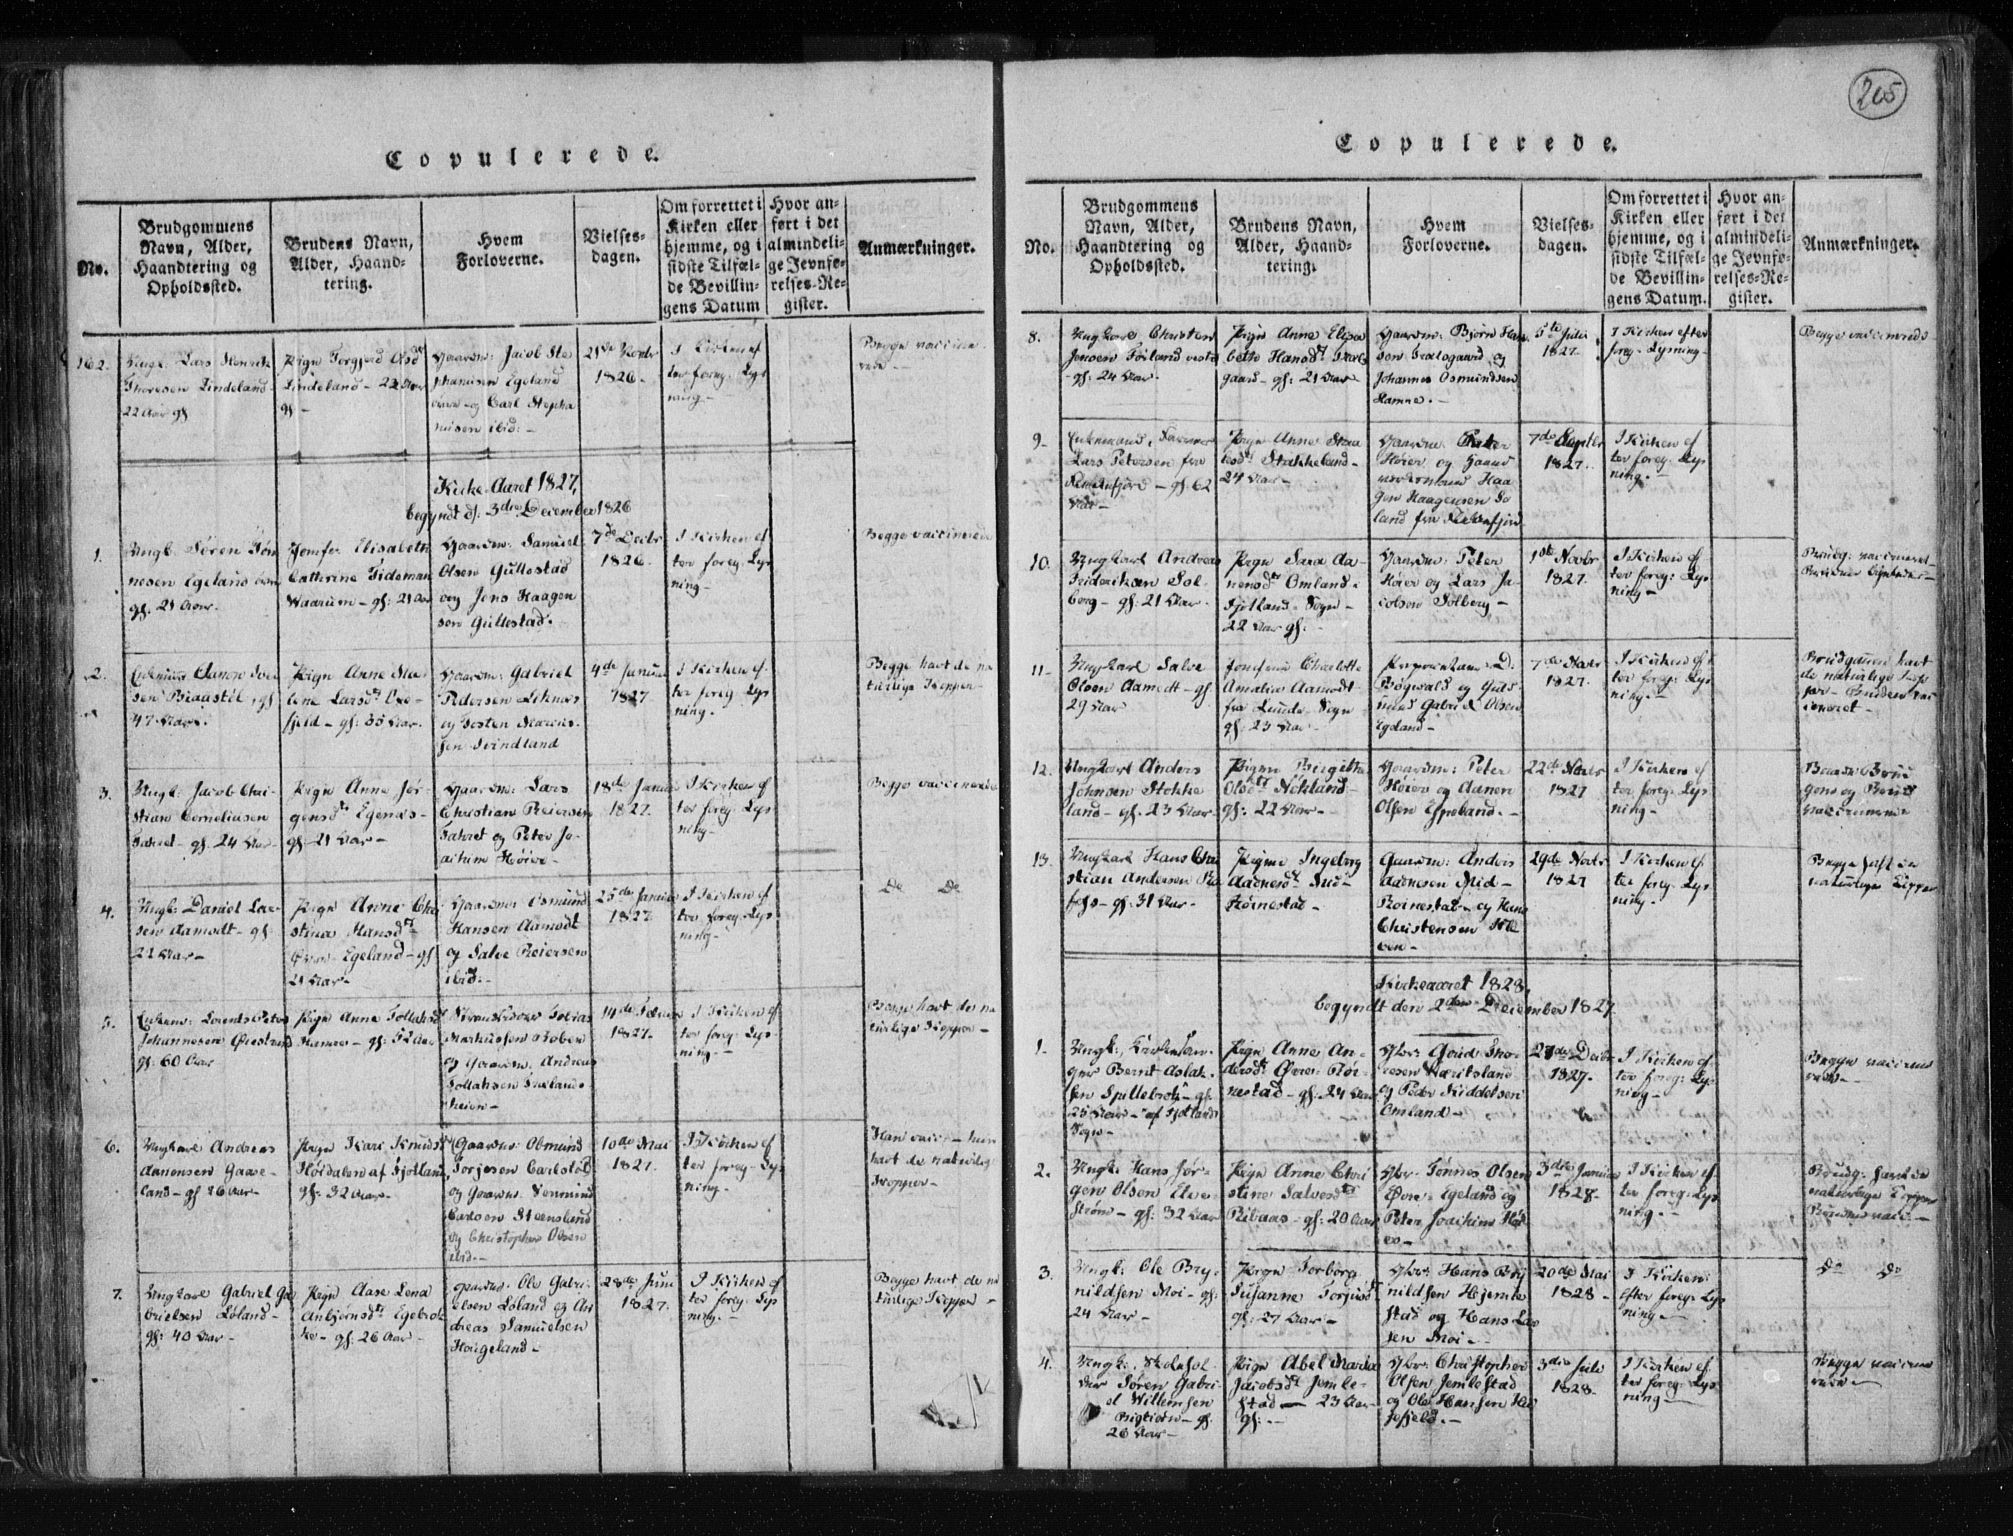 Copulerede.
No.
Brudgommens
Navn, Alder,
Haandtering og
Opholdssted.
Brudens Navn,
Alder, Haand-
tering.
Hvem
Forloverne.
Vielses-
dagen.
Om forrettet i
Kirken eller
hjemme, og i
sidste Tilfæl-
de Bevillin-
gens Datum
Hvor an-
ført i det
almindeli-
ge Jevnfø-
relses-Re-
gister.
Anmærkninger.
162.
Ungk. Lars Henrik
Thoresen Lindeland
22 Aar gl
Pigen Torgjerd Olsd
Lindeland - 22 Aar
gl -
Gaardm: Jacob Ste
phanisen Egeland
og Carl Stepha
nisen ibid: -
21de Novbr
1826.
I Kirken ef
ter foreg. Lys
ning -
Begge vaccine
rede -
Kirke-Aaret 1827,
begyndt d: 3die December 1826
1.
Ungk. Sören Tön
nesen Egeland
gl. 21 Aar.
Jomfr. Elisabeth
Cathrine Tideman
Waarum - gl: 21 Aar
Gaardm: Samuel
Olsen Gullestad
og Jens Haagen
sen Gullestad.
7de Decbr
1826.
I Kirken ef
ter foreg. Lys
ning -
Begge vaccinerede
2.
Enkemand Aanon
sen Biaastöl, gl
47 Aar.
Pigen Anne
lene Larsdt
fjeld - gl: 35 Aar.
Gaardm: Gabriel
Pedersen Leknes
og Tosten Marcus-
sen Svindland
4de Januar
1827
I Kirken ef.
ter foreg. Lys
ning.
Begge havt de na
turlige Kopper -
3.
Ungk: Jacob Chri-
stian Corneliusen
gl. 24 Aar -
Pigen Anne Jör-
gensdt Egenæs-
gl - 21 Aar -
Gaardm: Lars
Christian Reiersen
og Peter Jo-
achim Höier -
18de Januar
1827.
I Kirken ef
ter foreg. Lys
ning -
Begge vaccinerede
4.
Ungk: Daniel Lar-
sen Aamodt - gl:
21 Aar -
Pigen Anne Chri
stina Hansdt
Övre - Egeland - gl
21 Aar -
Gaardm: Osmund
Hansen Aamodt
og Salve Reiersen
ibid: -
25de Januar
1827.
I Kirken ef
ter foreg. Lys
ning -
Do Do
5.
Enkem: Lorents Peter
Johannesen Öiestrand
gl. 60 Aar
Pigen Anne Tollaksdt
Hamre - gl: 52 Aar
Tobias
Markussen
og Gaardm. Andreas
Tollaksen
heien -
14de Februar
1827.
I Kirken ef
ter foreg. Lys
ning. -
Begge havt de na
turlige Kopper -
6.
Ungkarl Andreas
Aanonsen Gaase-
land - gl 26 Aar -
Pigen Kari Knudsdt
Höidalen af Fjotland
gl: 32 Aar -
Gaardm: Osmund
Torjesen Carlstöl
og Gaardm.
Carlsen Steensland
og Christopher Olsen
ibid. -
10de Mai
1827.
I Kirken ef
ter foreg. Lys
ning. -
Han vacc - hun
havt de naturlige
Kopper -
7.
Ungkarl Gabriel Ga
brielsen Loland -
gl: 40 Aar -
Pigen Aase Lena
Anbjørnsdt Egebok
ke - gl: 26 Aar -
Gaardm. Ole Gabri-
elsen Loland og An
dreas Samuelsen
Hougeland -
28de Juni
1827.
I Kirken ef
ter foreg. Lys
ning. -
Begge havt de na
turlige Kopper -
205
Copulerede.
No.
Brudgommens
Navn, Alder,
Haandtering og
Opholdssted.
Brudens Navn,
Alder, Haand-
tering.
Hvem
Forloverne.
Vielses-
dagen.
Om forrettet i
Kirken eller
hjemme, og i
sidste Tilfæl-
de Bevillin-
gens Datum.
Hvor an-
ført i det
almindeli-
ge Jevnfø-
relses-Re-
gister.
Anmærkninger.
8.
Ungkarl Christen
Jensen
- gl: 24 Aar.
Pigen Anne Elisa
beth Hansdt
gaard - gl: 21 Aar -
Gaardm: Björn Han
sen og
Johannes Osmundsen
Hamre. -
5te Juli
1827.
I Kirken efter
foreg. Lysning -
Begge vaccinerede
9-
Enkemand,
Lars Petersen fra
Flekkefjord - gl 62
Aar -
Pigen Anne
Stakkeland -
24 Aar -
Gaardm: Peter
Höier og Haand
Haa
gen Haagensen So
land fra Flekkefjord
7de Septbr
1827.
I Kirken ef
ter foreg. Lys
ning. -
10.
Ungkarl Andreas
Frideriksen Sol-
berg - gl: 21 Aar -
Pigen Sara Aa-
nensdt Omland.
Fjotland - Sogn -
22 Aar gl: -
Gaardm: Peter
Höier og Lars Ja-
cobsen Solberg -
1ste Novbr
1827.
I Kirken ef-
ter foreg. Lys-
ning -
Brudg: vaccineret -
11-
Ungkarl Salve
Olsen Aamodt - gl
29 Aar
Jomfrue Charlotte
Amalia Aamodt
fra Lunde - Sogn
gl: 23 Aar -
D:
og Guld-
smed Gabriel Olsen
Egeland -
7de Novbr
1827.
I Kirken ef
ter foreg. Lys
ning -
Brudgomen havt
de naturlige Kop
per - Bruden vac
cineret -
12.
Ungkarl Anders
Johnsen Stokke
land - gl. 23 Aar
Pigen Birgithe
Olsdt Nökland -
gl: 22 Aar -
Gaardm: Peter
Höier og Aanon
Olsen -
22de Novbr
1827
I Kirken ef
ter foreg. Lys
ning -
Baade Brud
gom og Brud
vaccinerede
13.
Ungkarl Hans Chri
stian Andersen
- gl: 31 Aar -
Pigen Ingeborg
Aadnesdt Mid-
Rörnestad -
Gaardm: Anders
Aadnesen Mid-
Rörnestad - og Hans
Christensen
29de Novbr
1827
I Kirken ef
ter foreg. Lys
ning -
Begge havt de
naturlige Kopper
Kirkeaaret 1828,
begyndt den 2den December 1827
1.
Ungk:, Kirkesan-
ger Bernt Aslak-
sen Spillebrok - gl:
25 Aar - af Fjotlands
Sogn -
Pigen Anne An-
dersdt Övre - Rör-
nestad - gl: 24 Aar
Gbr: Tho-
resen
og Peder Kiddelsen
Omland -
27de Decbr
1827.
I Kirken ef
ter foreg: Lys
ning -
Begge vaccine
rede -
2.
Ungk: Hans Jör-
gen Olsen Elve-
ström - gl: 32 Aar
Pigen Anne Chri
stine Salvesdt
Ribaas - gl: 20 Aar
Gbr. Tönnes Olsen
Övre - Egeland og
Peter Joachim Höi-
er -
3die Januar
1828.
I Kirken ef
ter foreg. Lys
ning. -
Brudg: havt de
naturlige Kopper
Bruden vacc. -
3.
Ungk: Ole Bry-
nildsen Moi - gl:
24 Aar -
Pigen Torborg
Susanne Torjusdt
gl: 27 Aar -
Gbr: Hans Bry
nildsen Hjemle
stad og Hans Lar
sen Moi -
20de Mai
1828 -
I Kirken
efter foreg: Lys
ning -
Do Do
4.
Ungk:, Skolehol-
der Sören Gabri-
el Willumsen
- gl:
26 Aar -
Pigen Abel Maria
Jacobsdt Jemle-
stad - 23 Aar -
gl: -
Gbr: Christopher
Olsen Jemlestad
og Ole Hansen
3die Juli
1828.
I Kirken ef.
ter foreg: Lys
ning -
Begge vaccine
rede -